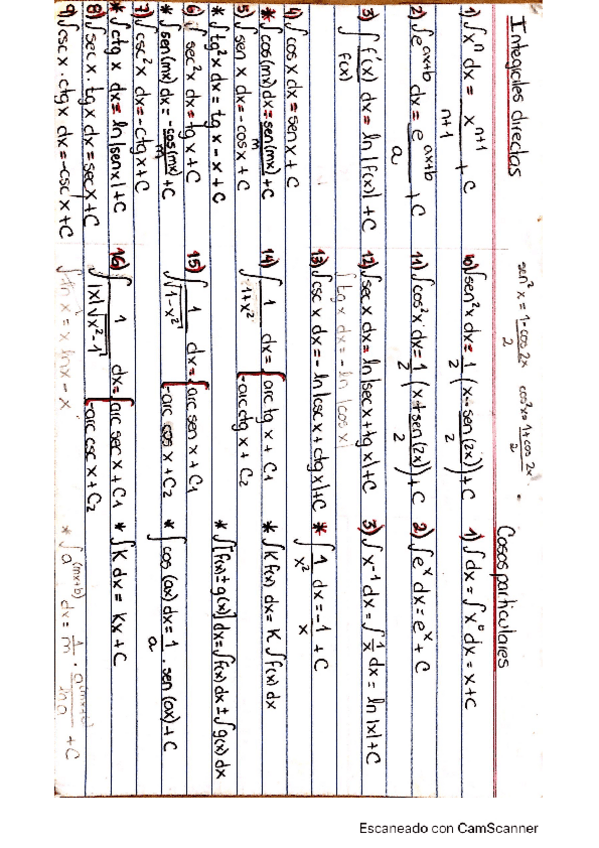 Integrales directas
1) ∫xⁿ dx = xⁿ⁺¹/n+1 + C
2) ∫e^(ax+b) dx = e^(ax+b)/a + C
3) ∫f'(x)/f(x) dx = ln|f(x)| + C
4) ∫cos x dx = sen x + C
* ∫cos(mx) dx = sen(mx)/m + C
5) ∫sen x dx = -cos x + C
* ∫tg²x dx = tg x - x + C
6) ∫sec²x dx = tg x + C
* ∫sen(mx) dx = -cos(mx)/m + C
7) ∫csc²x dx = -ctg x + C
* ∫ctg x dx = ln|sen x| + C
8) ∫sec x · tg x dx = sec x + C
9) ∫csc x · ctg x dx = -csc x + C
sen²x = 1-cos 2x/2 cos²x = 1+cos 2x/2
10) ∫sen²x dx = 1/2 (x - sen(2x)/2) + C
11) ∫cos²x dx = 1/2 (x + sen(2x)/2) + C
12) ∫sec x dx = ln|sec x + tg x| + C
∫tg x dx = -ln|cos x|
13) ∫csc x dx = -ln|csc x + ctg x| + C
14) ∫1/1+x² dx = { arc tg x + C1
-arc ctg x + C2
15) ∫1/√1-x² dx = { arc sen x + C1
-arc cos x + C2
16) ∫1/|x|√x²-1 dx = { arc sec x + C1
-arc csc x + C2
∫ln x = x ln x - x
Casos particulares
1) ∫dx = ∫x⁰ dx = x + C
2) ∫eˣ dx = eˣ + C
3) ∫x⁻¹ dx = ∫1/x dx = ln|x| + C
* ∫1/x² dx = -1/x + C
* ∫K f(x) dx = K ∫f(x) dx
* ∫[f(x) ± g(x)] dx = ∫f(x) dx ± ∫g(x) dx
* ∫cos(ax) dx = 1/a · sen(ax) + C
* ∫K dx = Kx + C
* ∫a^(mx+b) dx = 1/m · a^(mx+b)/ln a + C
Escaneado con CamScanner